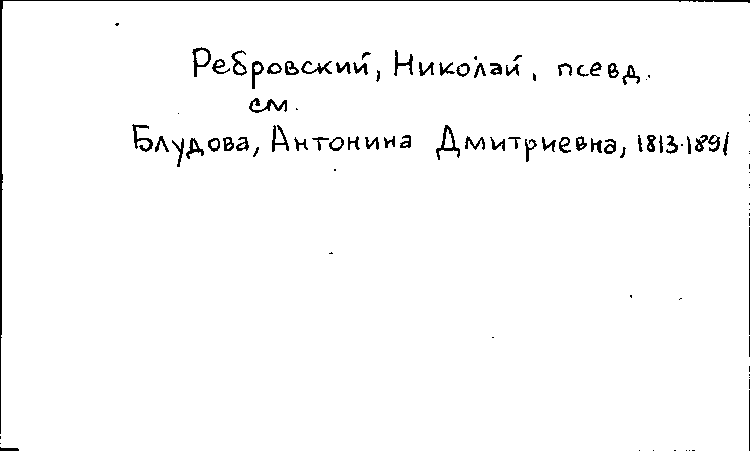 Ребровский, Николай, псевд.
см.
Блудова, Антонина Дмитриевна, 1813-1891